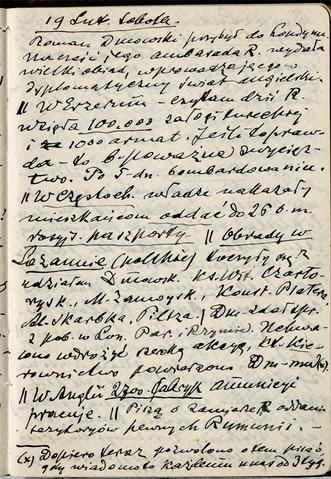 19 Lut. Sobota.
Roman Dmowski przybył do Londynu.
Na cześć jego ambasada R. wydała
wielki obiad, wprowadzając go w
dyplomatyczny świat angielski.
|| W Erzerum – czytam dziś R.
wzięła 100.000 załogi tureckiej
i 1000 armat. Jeśli to praw-
da – to b. poważne zwycięz-
two. Po 5-dn. bombardowaniu.
|| W Częstoch. władze nakazały
mieszkańcom oddać do 26 b.m.
rosyj. paszporty || Obrady w
Lozannie (polskie) toczyły się z
udziałem Dmowsk. Ks. Wit. Czarto-
rysk., M. Zamoysk., Konst. Platera,
Al. Skarbka, Piltza. Dm. zdał spr.
z pob. w Lon. Par. i Rzymie. Uchwa-
lono wdrożyć szeroką akcyę, kt. kie-
rownictwo powierzono Dm-mu (x).
|| W Anglii 2700 fabryk amunicyi
pracuje. || Piszą o zamiarze R. oddania
terytoryów pewnych Rumunii. –
(x) Dopiero teraz pozwolono o tem pisać
gdy wiadomo to każdemu u nas od 3 tyg.